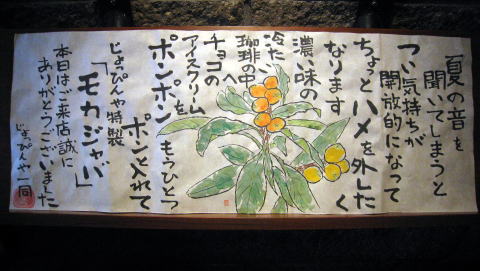 夏の音を
聞いてしまうと
つい気持ちが
開放的になって
ちょっとハメを外したく
なります
濃い味の
冷たい
珈琲の中へ
チョコの
アイスクリームを
ポンポンもうひとつ
ポンと入れて
じょっぴんや特製
「モカジャバ」
本日はご来店誠に
ありがとうございました
じょっぴんや一同